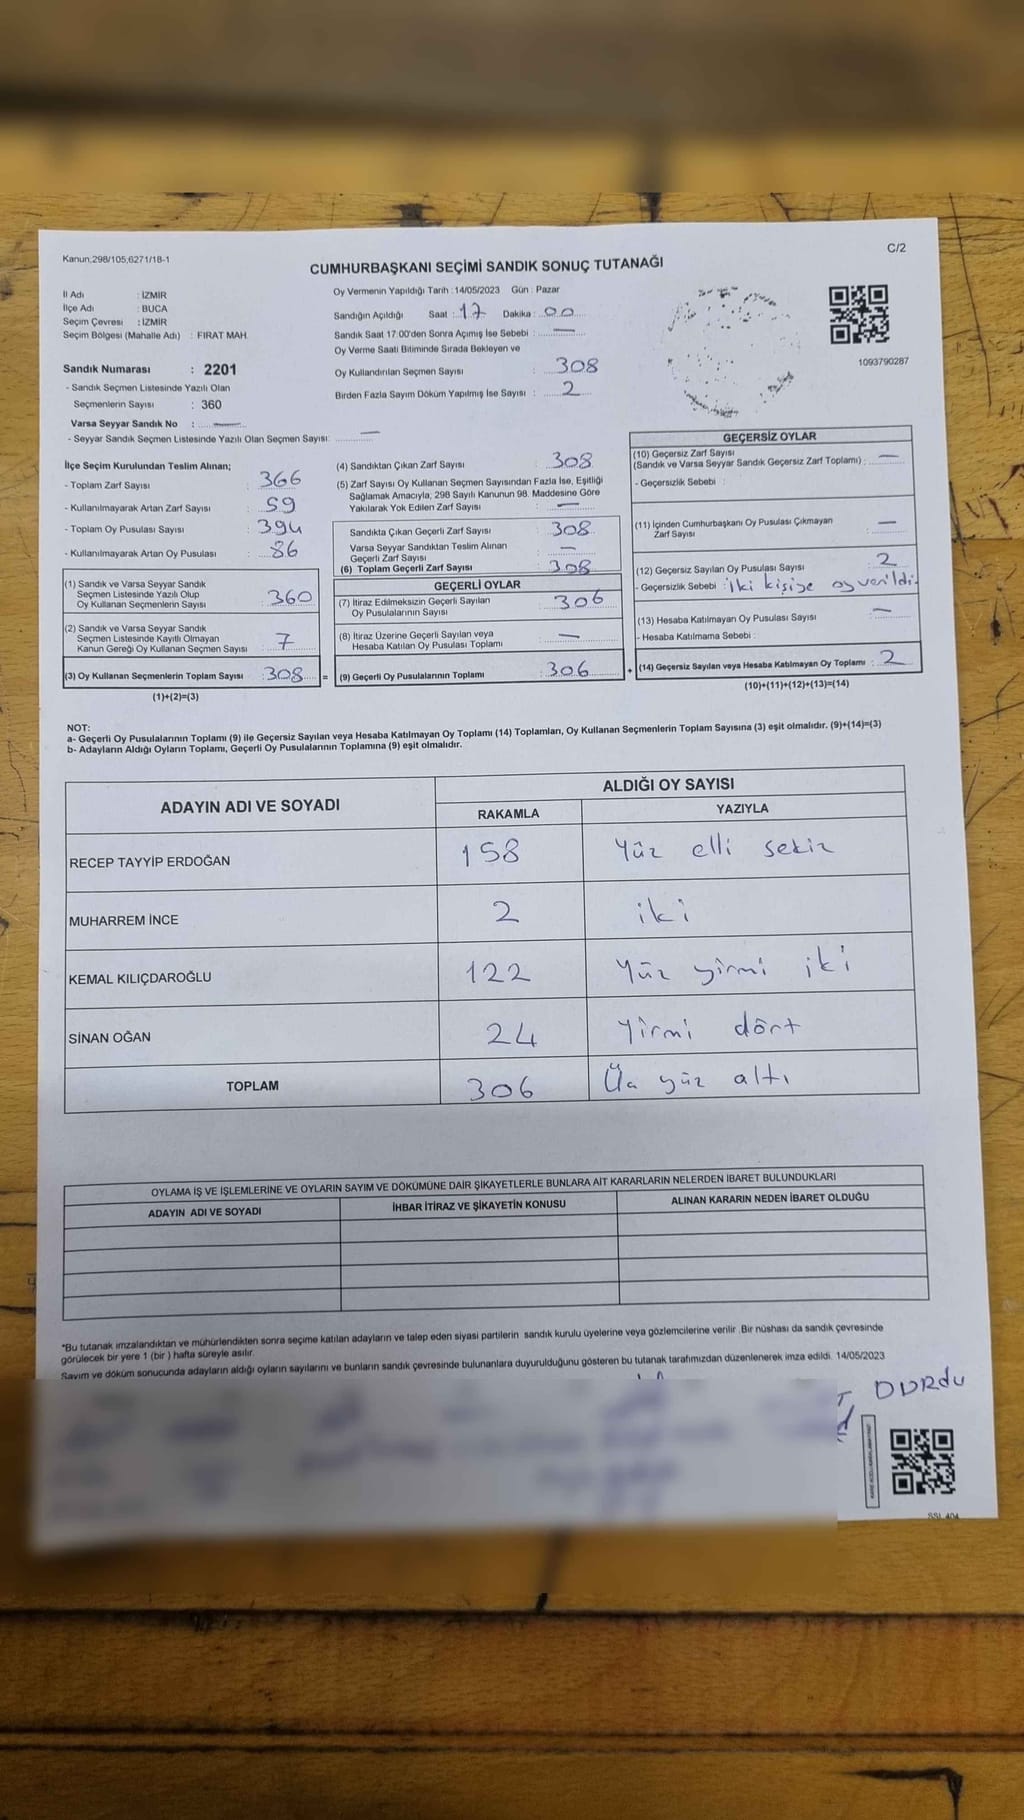 Kanun;298/105,6271/18-1
C/2
CUMHURBAŞKANI SEÇİMİ SANDIK SONUÇ TUTANAĞI
İl Adı : İZMİR
İlçe Adı : BUCA
Seçim Çevresi : İZMİR
Seçim Bölgesi (Mahalle Adı) : FIRAT MAH.
Sandık Numarası : 2201
- Sandık Seçmen Listesinde Yazılı Olan
Seçmenlerin Sayısı : 360
Varsa Seyyar Sandık No : —
- Seyyar Sandık Seçmen Listesinde Yazılı Olan Seçmen Sayısı: —
Oy Vermenin Yapıldığı Tarih : 14/05/2023 Gün : Pazar
Sandığın Açıldığı Saat : 17 Dakika : 00
Sandık Saat 17:00'den Sonra Açımış İse Sebebi : —
Oy Verme Saati Bitiminde Sırada Bekleyen ve
Oy Kullandırılan Seçmen Sayısı : 308
Birden Fazla Sayım Döküm Yapılmış İse Sayısı : 2
1093790287
İlçe Seçim Kurulundan Teslim Alınan;
- Toplam Zarf Sayısı : 366
- Kullanılmayarak Artan Zarf Sayısı : 59
- Toplam Oy Pusulası Sayısı : 394
- Kullanılmayarak Artan Oy Pusulası : 86
(1) Sandık ve Varsa Seyyar Sandık
Seçmen Listesinde Yazılı Olup
Oy Kullanan Seçmenlerin Sayısı : 360
(2) Sandık ve Varsa Seyyar Sandık
Seçmen Listesinde Kayıtlı Olmayan
Kanun Gereği Oy Kullanan Seçmen Sayısı : 7
(3) Oy Kullanan Seçmenlerin Toplam Sayısı : 308 =
(1)+(2)=(3)
(4) Sandıktan Çıkan Zarf Sayısı : 308
(5) Zarf Sayısı Oy Kullanan Seçmen Sayısından Fazla İse, Eşitliği
Sağlamak Amacıyla; 298 Sayılı Kanunun 98. Maddesine Göre
Yakılarak Yok Edilen Zarf Sayısı : —
Sandıkta Çıkan Geçerli Zarf Sayısı : 308
Varsa Seyyar Sandıktan Teslim Alınan
Geçerli Zarf Sayısı : —
(6) Toplam Geçerli Zarf Sayısı : 308
GEÇERLİ OYLAR
(7) İtiraz Edilmeksizin Geçerli Sayılan
Oy Pusulalarının Sayısı : 306
(8) İtiraz Üzerine Geçerli Sayılan veya
Hesaba Katılan Oy Pusulası Toplamı : —
(9) Geçerli Oy Pusulalarının Toplamı : 306 +
GEÇERSİZ OYLAR
(10) Geçersiz Zarf Sayısı
(Sandık ve Varsa Seyyar Sandık Geçersiz Zarf Toplamı) : —
- Geçersizlik Sebebi :
(11) İçinden Cumhurbaşkanı Oy Pusulası Çıkmayan
Zarf Sayısı : —
(12) Geçersiz Sayılan Oy Pusulası Sayısı : 2
- Geçersizlik Sebebi : İki kişiye oy verildi.
(13) Hesaba Katılmayan Oy Pusulası Sayısı : —
- Hesaba Katılmama Sebebi :
(14) Geçersiz Sayılan veya Hesaba Katılmayan Oy Toplamı : 2
(10)+(11)+(12)+(13)=(14)
NOT:
a- Geçerli Oy Pusulalarının Toplamı (9) ile Geçersiz Sayılan veya Hesaba Katılmayan Oy Toplamı (14) Toplamları, Oy Kullanan Seçmenlerin Toplam Sayısına (3) eşit olmalıdır. (9)+(14)=(3)
b- Adayların Aldığı Oyların Toplamı, Geçerli Oy Pusulalarının Toplamına (9) eşit olmalıdır.
ADAYIN ADI VE SOYADI ALDIĞI OY SAYISI
RAKAMLA YAZIYLA
RECEP TAYYİP ERDOĞAN 158 Yüz elli sekiz
MUHARREM İNCE 2 iki
KEMAL KILIÇDAROĞLU 122 Yüz yirmi iki
SİNAN OĞAN 24 Yirmi dört
TOPLAM 306 Üç yüz altı
OYLAMA İŞ VE İŞLEMLERİNE VE OYLARIN SAYIM VE DÖKÜMÜNE DAİR ŞİKAYETLERLE BUNLARA AİT KARARLARIN NELERDEN İBARET BULUNDUKLARI
ADAYIN ADI VE SOYADI İHBAR İTİRAZ VE ŞİKAYETİN KONUSU ALINAN KARARIN NEDEN İBARET OLDUĞU
*Bu tutanak imzalandıktan ve mühürlendikten sonra seçime katılan adayların ve talep eden siyasi partilerin sandık kurulu üyelerine veya gözlemcilerine verilir. Bir nüshası da sandık çevresinde
görülecek bir yere 1 (bir ) hafta süreyle asılır.
Sayım ve döküm sonucunda adayların aldığı oyların sayılarını ve bunların sandık çevresinde bulunanlara duyurulduğunu gösteren bu tutanak tarafımızdan düzenlenerek imza edildi. 14/05/2023
DURdu